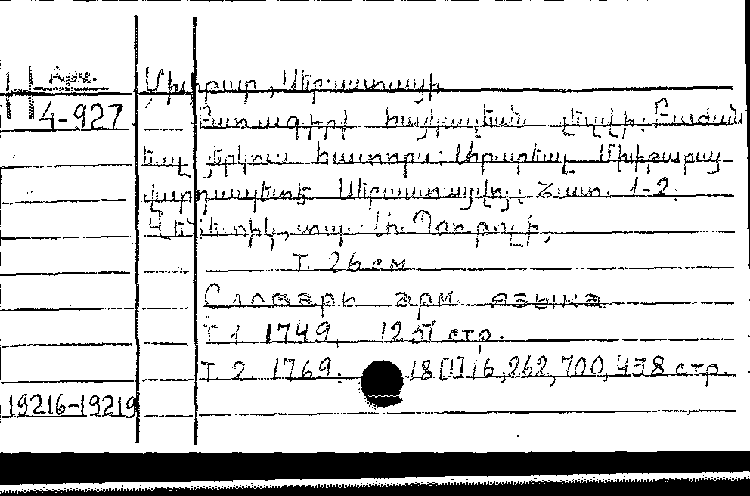 Арм.
4-927
Մխիթար, Սեբաստացի
Բառագիրք հայկազեան լեզւի: Բաժան
եալ յերկուս հատորս: Արարեալ Մխիթարայ
վարդապետէ Սեբաստացւոյ: Հատ. 1-2.
Վենետիկ, տպ.
Т. 26 см
Словарь арм языка
Т 1 1749, 1251 стр.
Т 2 1769. 18[1]16,262,700,438 стр.
19216-19219